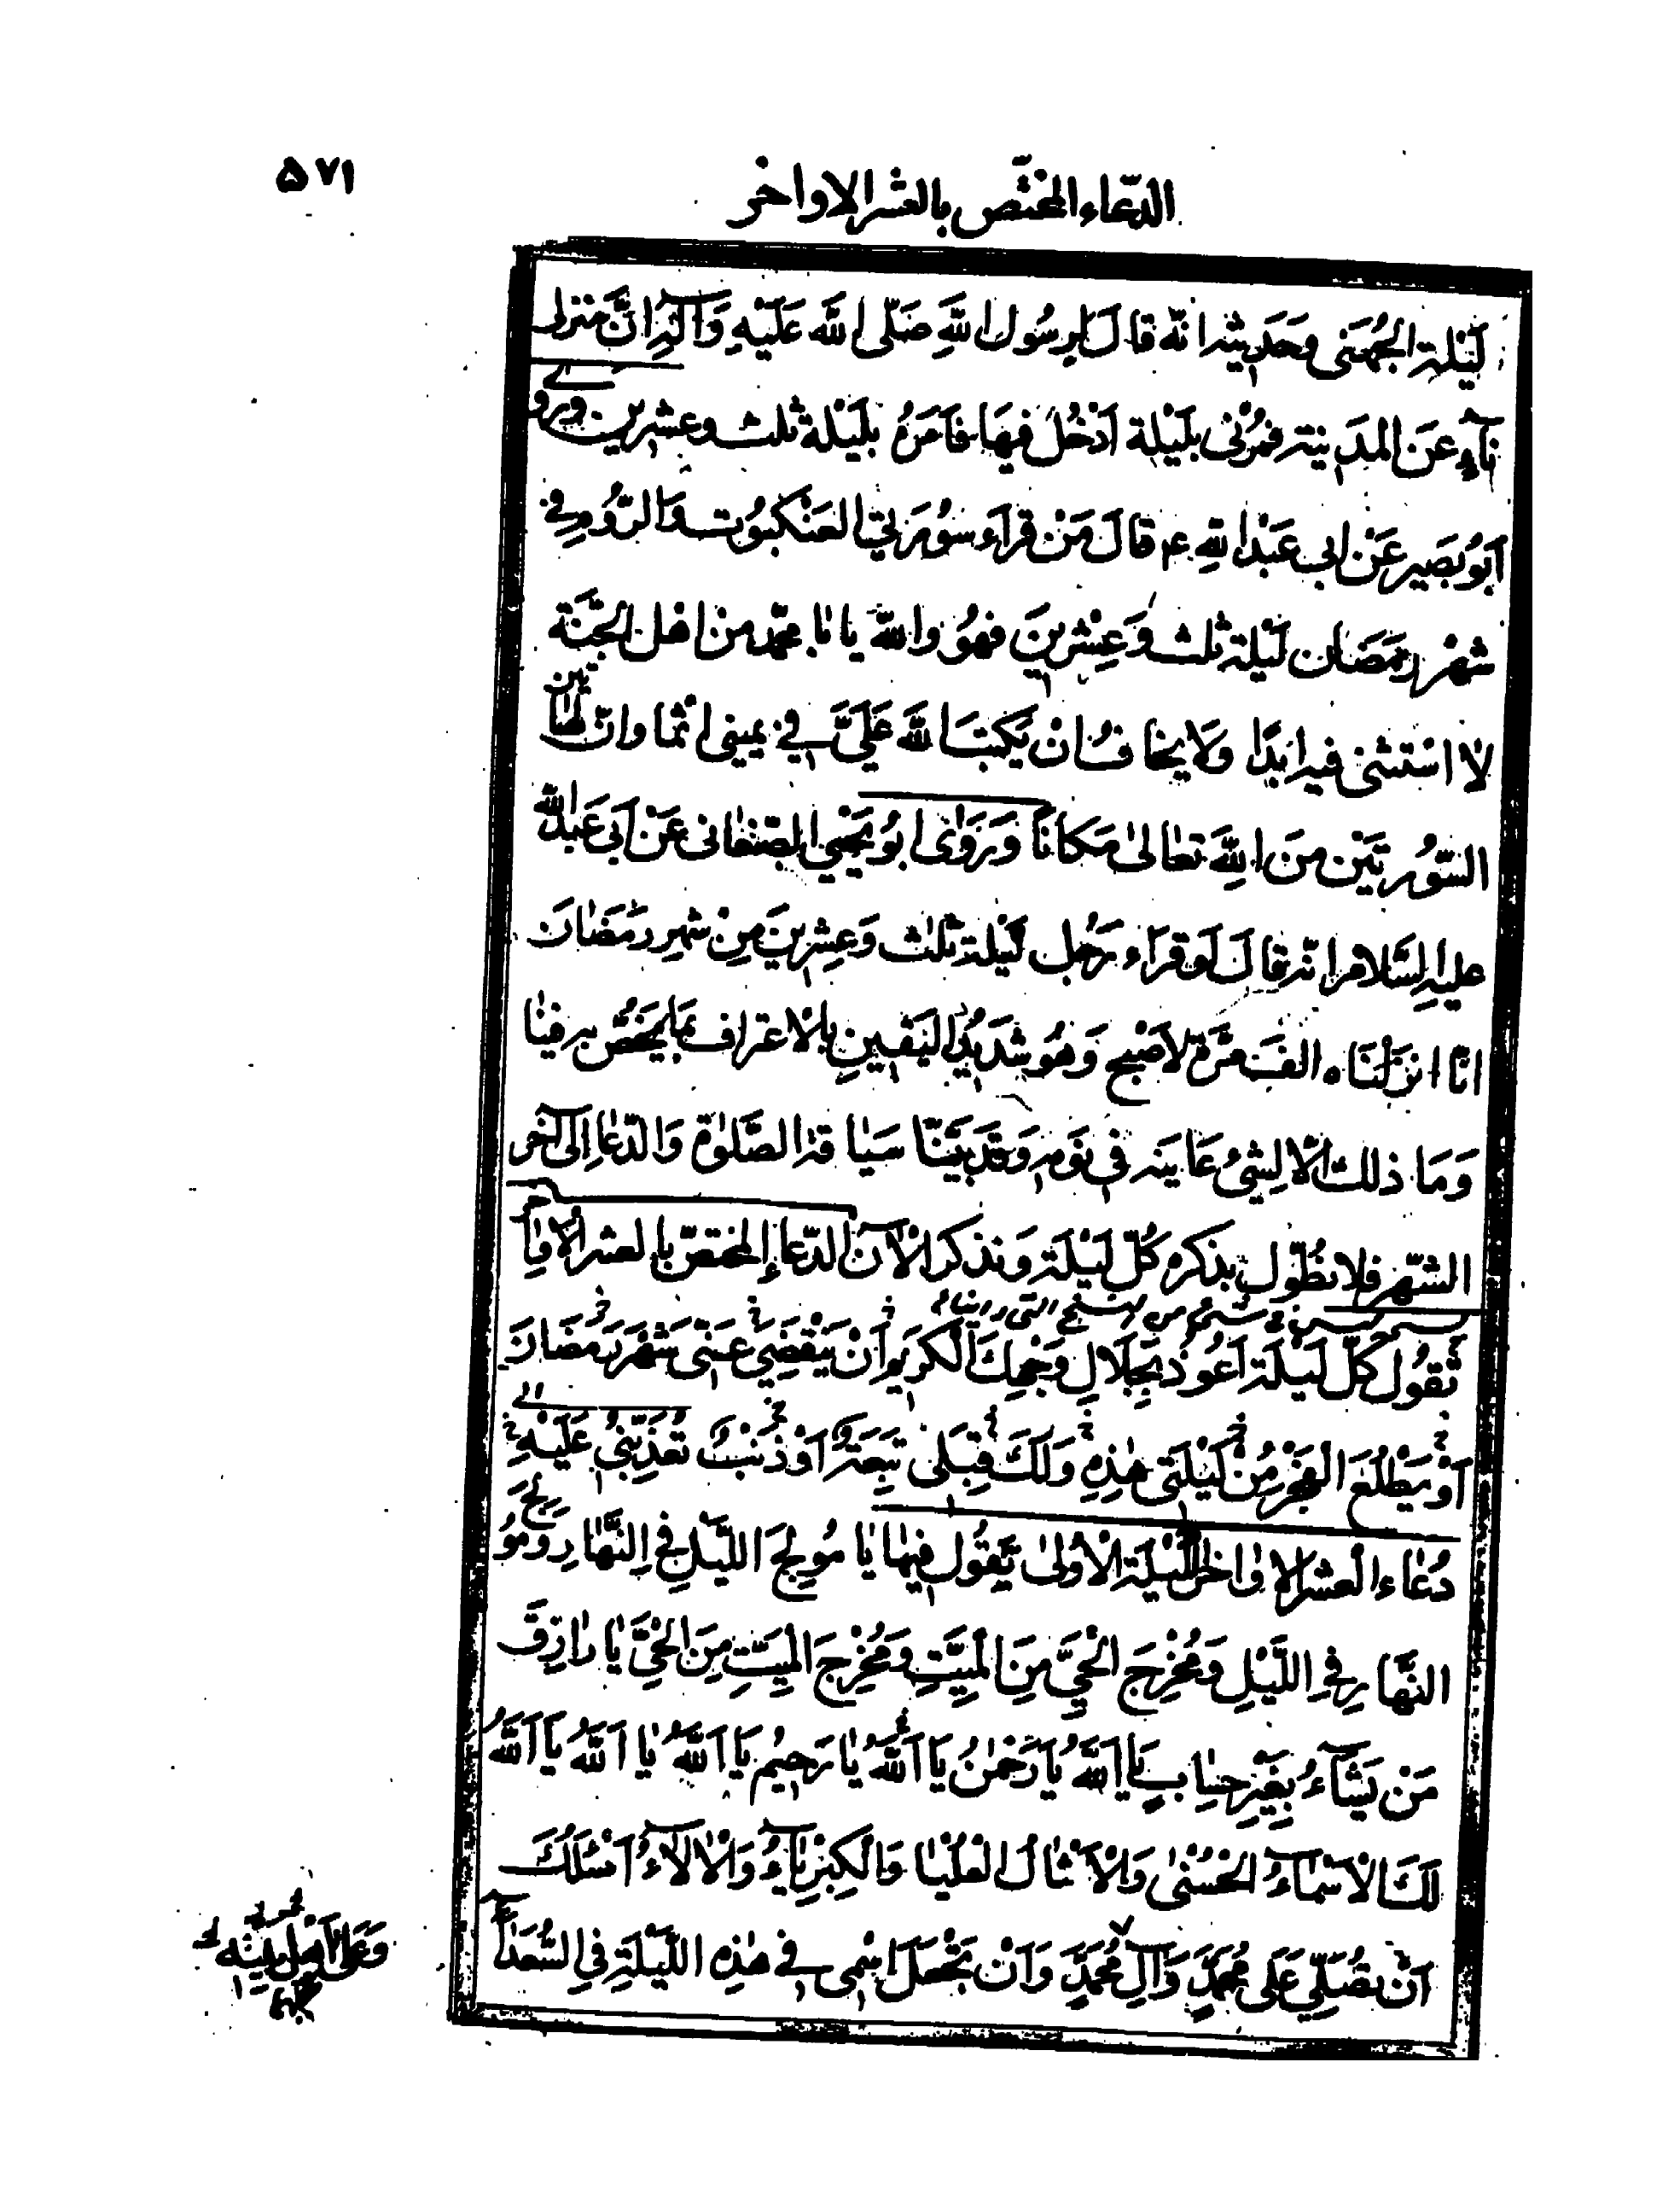 الدّعاء المختّص بالعشر الاواخر
۵۷۱
لَيْلة الجُهَنى وحَديثه انّه قال لِرسُول اللهِ صَلّى الله عَلَيْهِ وَآلِهِ انَّ منزلى
نآءٍ عن المدَينة فمُرْنى بلَيْلة اَدْخُل فيهَا فاَمَرَهُ بلَيْلة ثلث وعشرين وروى
اَبوُ بَصَير عَنْ ابى عَبْد اللهِ ع قالَ مَنْ قراَء سوُرَتى العَنْكبوُت وَالرّوُم في
شهْر رمَضان لَيْلة ثلث وَعِشْرينَ فهوُ والله يا ابا محمّد من اهْل الجنّة
لا اسْتثنى فيه ابَدًا وَلا يخاف انْ يَكتبَ اللهَ عَلَيَّ في يمينى اثمًا وانّ لهاتين
السّوُرتَيْن منَ اللهِ تعالىٰ مَكانًا وَرَوٰى ابوُ يَحْيي الصّنعانى عَنْ اَبى عَبد الله
عليهِ السَّلام انّه قال لَوْ قراَء رَجُل لَيْلة ثلٰث وَعِشرينَ مِنْ شهرِ رمَضانَ
انّا انزَلْنَاه الفَ مرّة لاَصْبح وَهُو شدَيدُ اليَقين بالاعتراف بمَا يَخصّ به فينا
وَمَا ذلك الّا لِشَيْء عَاينَه في نوَمه وَقد بيَّنّا سيَاقة الصَّلوٰة وَالدّعٰاء الى آخر
الشّهر فلا نطُوّل بذكره كُلّ لَيْلَة وَنذكر الآن الدّعاء المختصّ بالعشر الاواخر
تَقوُل كُلّ لَيْلَة اَعوُذ بِجَلالِ وَجْهِكَ الْكَريم اَنْ يَنْقَضِيَ عَنّى شَهْرُ رَمَضَانَ
اَوْ يَطْلُعَ الْفَجْرُ مِنْ لَيْلَتى هٰذِهِ وَلَكَ قِبَلى تَبِعَةٌ اَوْ ذَنْبٌ تُعَذِّبُنى عَلَيْهِ
دُعَاء العشر الاواخر اللّيْلة الْاوُلىٰ تَقوُل فيهَا يَا مُولِجَ اللَّيْلِ فِي النَّهَارِ وَمُولِجَ
النَّهَارِ فِي اللَّيْلِ وَمُخْرِجَ الْحَيِّ مِنَ الْمَيِّتِ وَمُخْرِجَ الْمَيِّتِ مِنَ الْحَيِّ يَا رَازِقَ
مَنْ يَشَآءُ بِغَيْرِ حِسَابٍ يَا اَللهُ يَا رَحْمٰنُ يَا اَللهُ يَا رَحيمُ يَا اَللهُ يَا اَللهُ يَا اَللهُ
لَكَ الْاَسْمَآءُ الْحُسْنىٰ وَالْاَمْثَالُ الْعُلْيَا وَالْكِبْرِيَآءُ وَالْآلَآءُ اَسْئَلُكَ
اَنْ تُصَلِّيَ عَلىٰ مُحَمَّدٍ وَآلِ مُحَمَّدٍ وَاَنْ تَجْعَلَ اسْمى في هٰذِهِ اللَّيْلَةِ فِي السُّعَدَآءِ
وَعَلىٰ اَهْلِ بَيْتِه